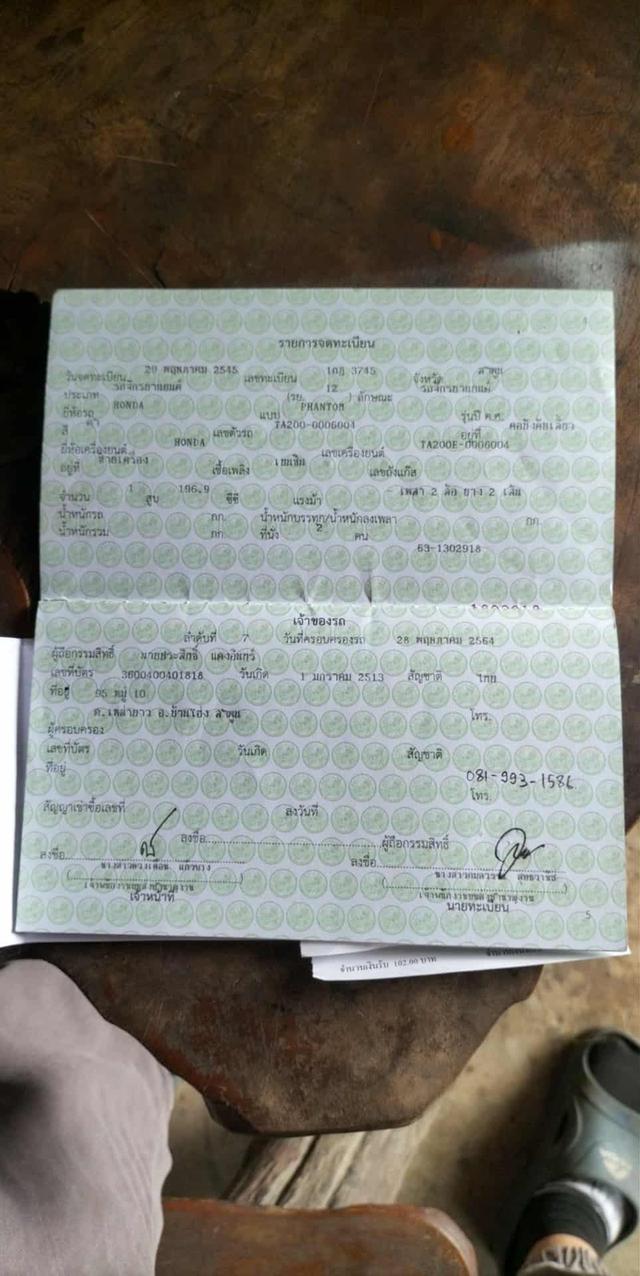 รายการจดทะเบียน
วันจดทะเบียน 29 พฤษภาคม 2545 เลขทะเบียน 3745 จังหวัด ลำพูน
ประเภท รถจักรยานยนต์ (รย. 12 ) ลักษณะ รถจักรยานยนต์
ยี่ห้อรถ HONDA แบบ PHANTOM รุ่นปี ค.ศ.
สี ดำ เลขตัวรถ TA200-0006004 อยู่ที่ คอยังคับเลี้ยว
ยี่ห้อเครื่องยนต์ HONDA เลขเครื่องยนต์ TA200E-0006004
อยู่ที่ เชื้อเพลิง เบนซิน เลขถังแก๊ส
จำนวน 1 สูบ 196.9 ซีซี แรงม้า - เพลา 2 ล้อ ยาง 2 เส้น
น้ำหนักรถ กก. น้ำหนักบรรทุก/น้ำหนักลงเพลา กก.
น้ำหนักรวม กก. ที่นั่ง 2 คน
63-1302918
เจ้าของรถ
ลำดับที่ 7 วันที่ครอบครองรถ 28 พฤษภาคม 2564
ผู้ถือกรรมสิทธิ์ นายประสิทธิ์ แดงอินทร์
เลขที่บัตร 3600400401818 วันเกิด 1 มกราคม 2513 สัญชาติ ไทย
ที่อยู่ 95 หมู่ 10
ต.เหล่ายาว อ.บ้านโฮ่ง ลำพูน โทร.
ผู้ครอบครอง
เลขที่บัตร วันเกิด สัญชาติ
ที่อยู่ 081-993-1586
โทร.
สัญญาเช่าซื้อเลขที่ ลงวันที่
ลงชื่อ ผู้ถือกรรมสิทธิ์
ลงชื่อ ลงชื่อ
เจ้าหน้าที่ นายทะเบียน
5
จำนวนเงินรับ 102.00 บาท